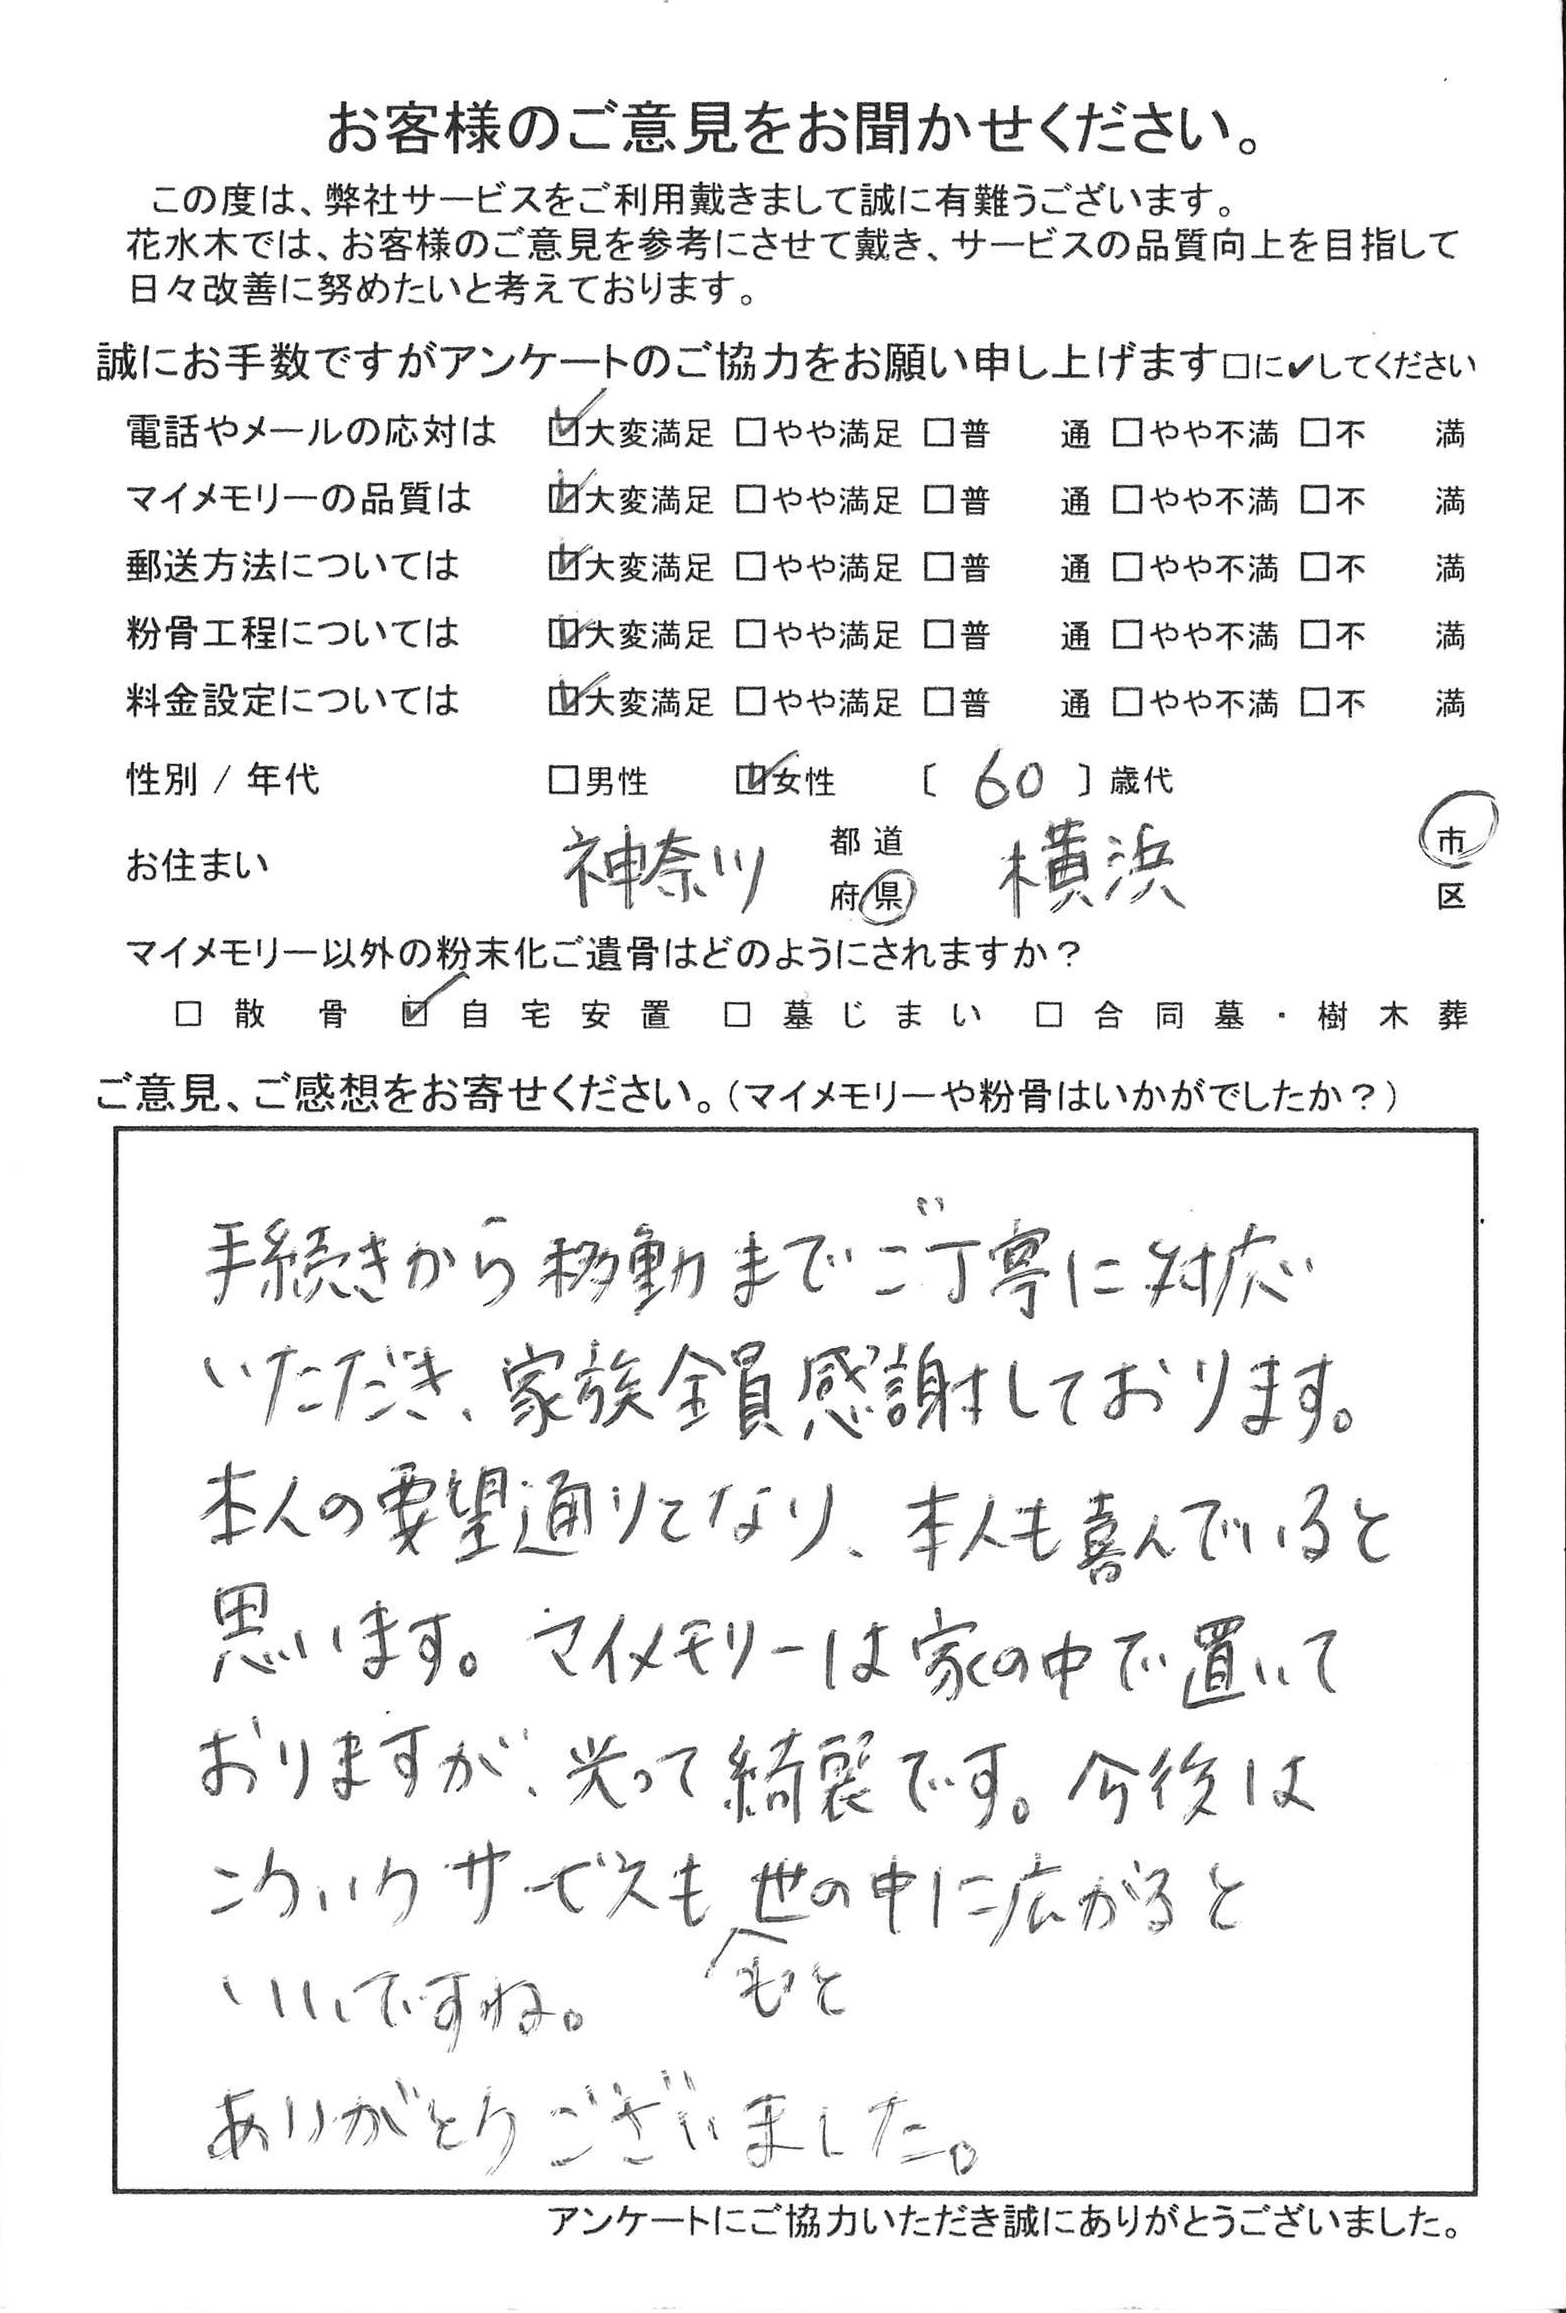 お客様のご意見をお聞かせください。
この度は、弊社サービスをご利用戴きまして誠に有難うございます。
花水木では、お客様のご意見を参考にさせて戴き、サービスの品質向上を目指して
日々改善に努めたいと考えております。
誠にお手数ですがアンケートのご協力をお願い申し上げます□に✔してください
電話やメールの応対は ☑大変満足 □やや満足 □普 通 □やや不満 □不 満
マイメモリーの品質は ☑大変満足 □やや満足 □普 通 □やや不満 □不 満
郵送方法については ☑大変満足 □やや満足 □普 通 □やや不満 □不 満
粉骨工程については ☑大変満足 □やや満足 □普 通 □やや不満 □不 満
料金設定については ☑大変満足 □やや満足 □普 通 □やや不満 □不 満
性別 / 年代 □男性 ☑女性 〔 60 〕歳代
お住まい 神奈川 都道府県 横浜 市区
マイメモリー以外の粉末化ご遺骨はどのようにされますか？
□ 散骨 ☑ 自宅安置 □ 墓じまい □ 合同墓・樹木葬
ご意見、ご感想をお寄せください。（マイメモリーや粉骨はいかがでしたか？）
手続きから移動までご丁寧に対応
いただき、家族全員感謝しております。
本人の要望通りとなり、本人も喜んでいると
思います。マイメモリーは家の中で置いて
おりますが、光って綺麗です。今後は
こういうサービスも世の中に広がると
いいですね。 もっと
ありがとうございました。
アンケートにご協力いただき誠にありがとうございました。